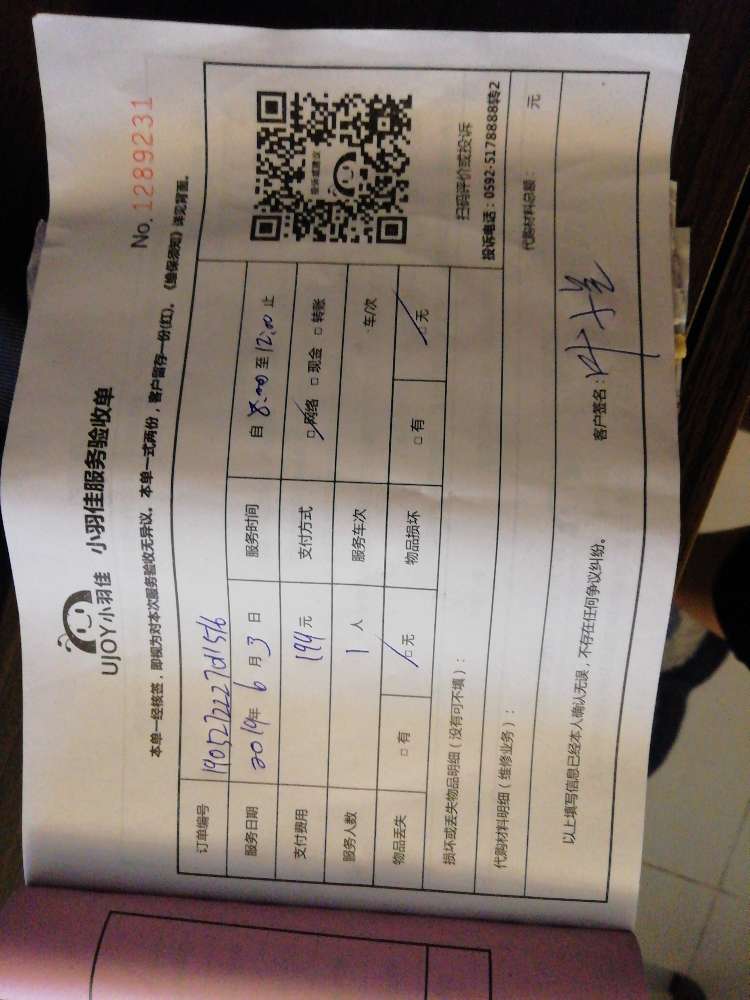 UJOY小羽佳 小羽佳服务验收单
No. 1289231
本单一经核签，即视为对本次服务验收无异议。本单一式两份，客户留存一份(红)。《维保须知》详见背面。
订单编号
服务日期 2019年 6 月 3 日 服务时间 自 8:00 至 12:00 止
支付费用 199 元 支付方式 □ 网络 □ 现金 □ 转账
服务人数 1 人 服务车次 车/次
物品丢失 □ 有 □ 无 物品损坏 □ 有 □ 无
扫码评价或投诉
投诉电话：0592-5178888转2
损坏或丢失物品明细（没有可不填）：
代购材料明细（维修业务）： 代购材料总额： 元
以上填写信息已经本人确认无误，不存在任何争议纠纷。 客户签名：